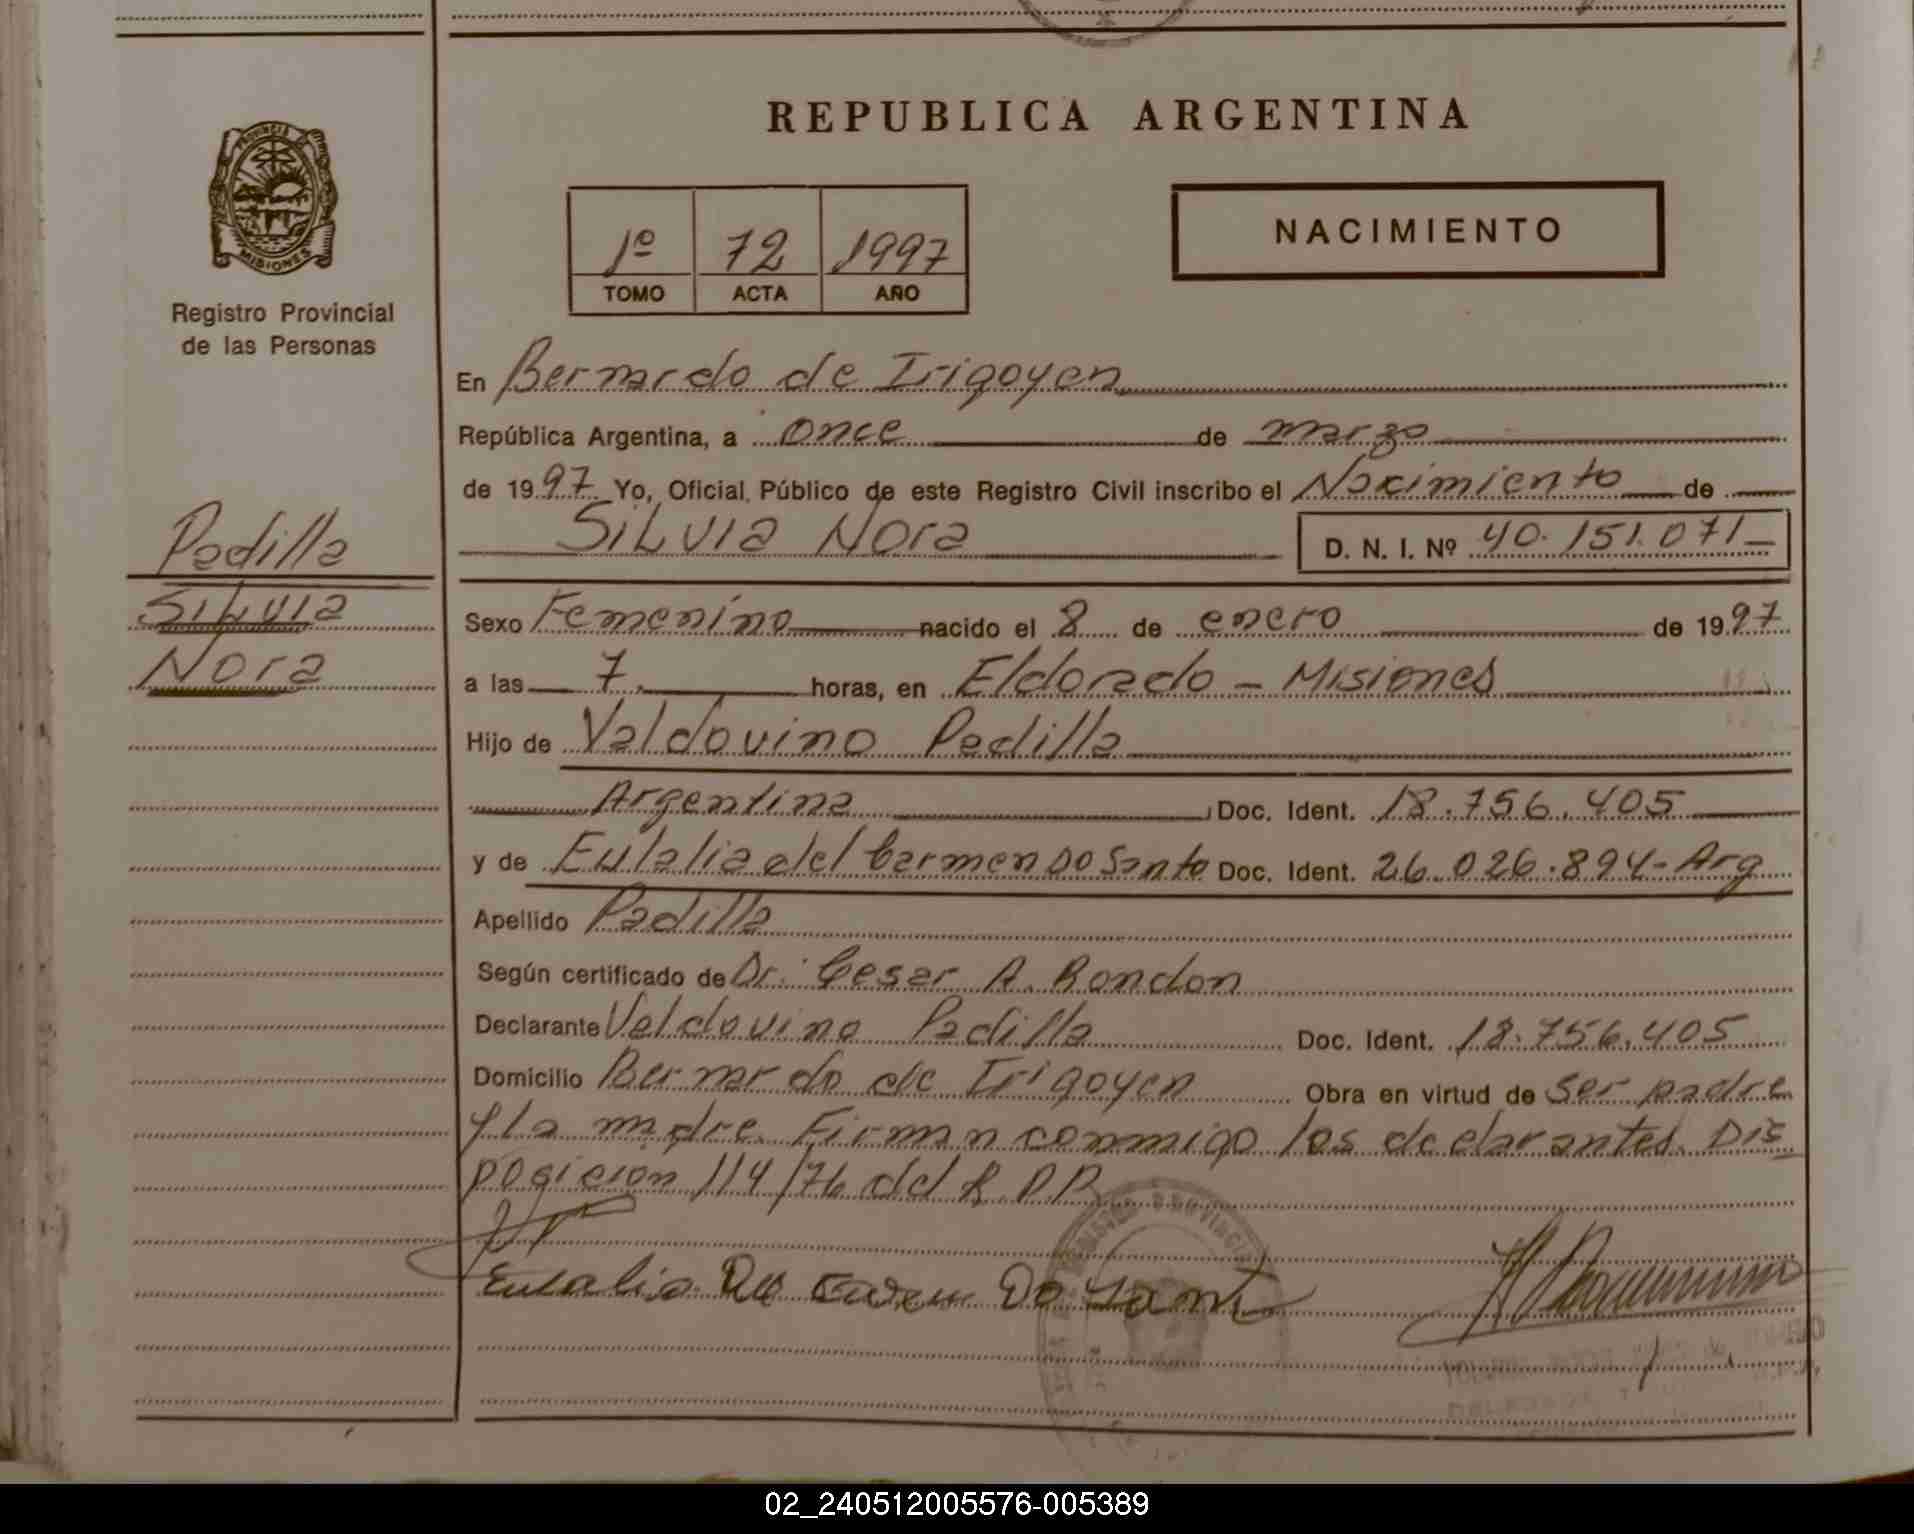 REPUBLICA ARGENTINA
PROVINCIA DE
MISIONES
Registro Provincial
de las Personas
1º 72 1997
TOMO ACTA AÑO
NACIMIENTO
En Bernardo de Irigoyen
República Argentina, a once de marzo
de 1997 Yo, Oficial Público de este Registro Civil inscribo el Nacimiento de
SiLvia Nora D. N. I. Nº 40.151.071
Padilla
SiLvia
Nora
Sexo Femenino nacido el 8 de enero de 1997
a las 7. horas, en Eldorado - Misiones
Hijo de Valdovino Padilla
Argentina Doc. Ident. 18.756.405
y de Eulalia del Carmen Do Santo Doc. Ident. 26.026.894-Arg
Apellido Padilla
Según certificado de Dr. Cesar A. Rondon
Declarante Valdovino Padilla Doc. Ident. 18.756.405
Domicilio Bernardo de Irigoyen Obra en virtud de ser padre
y la madre. Firman conmigo los declarantes. Dis
posicion 114/76 del R.P.P.
Eulalia Del Do Sant
02_240512005576-005389